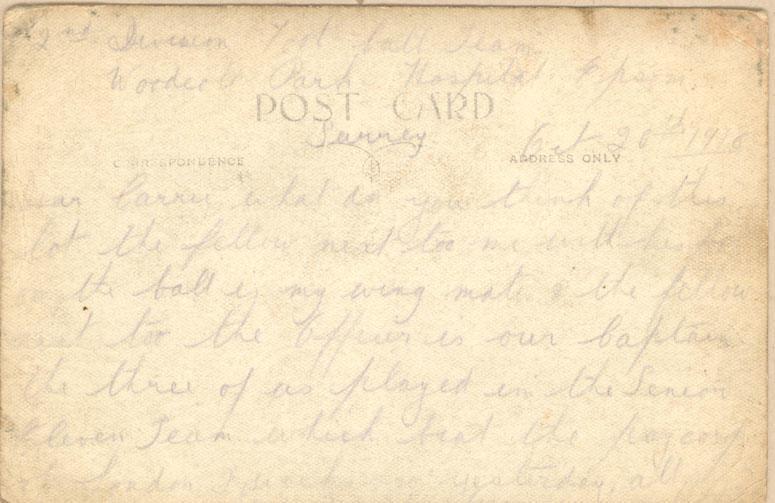 2nd Division Foot ball Team
Woodcote Park Hospital Epsom
POST CARD
Surrey
Oct 20th 1916
CORRESPONDENCE
ADDRESS ONLY
Dear Carrie what do you think of this
lot the fellow next too me with his
on the ball is my wing mate & the fellow
next too the Officer is our Captain
the three of us played in the Senior
Eleven Team which beat the paycorp
London yesterday, all